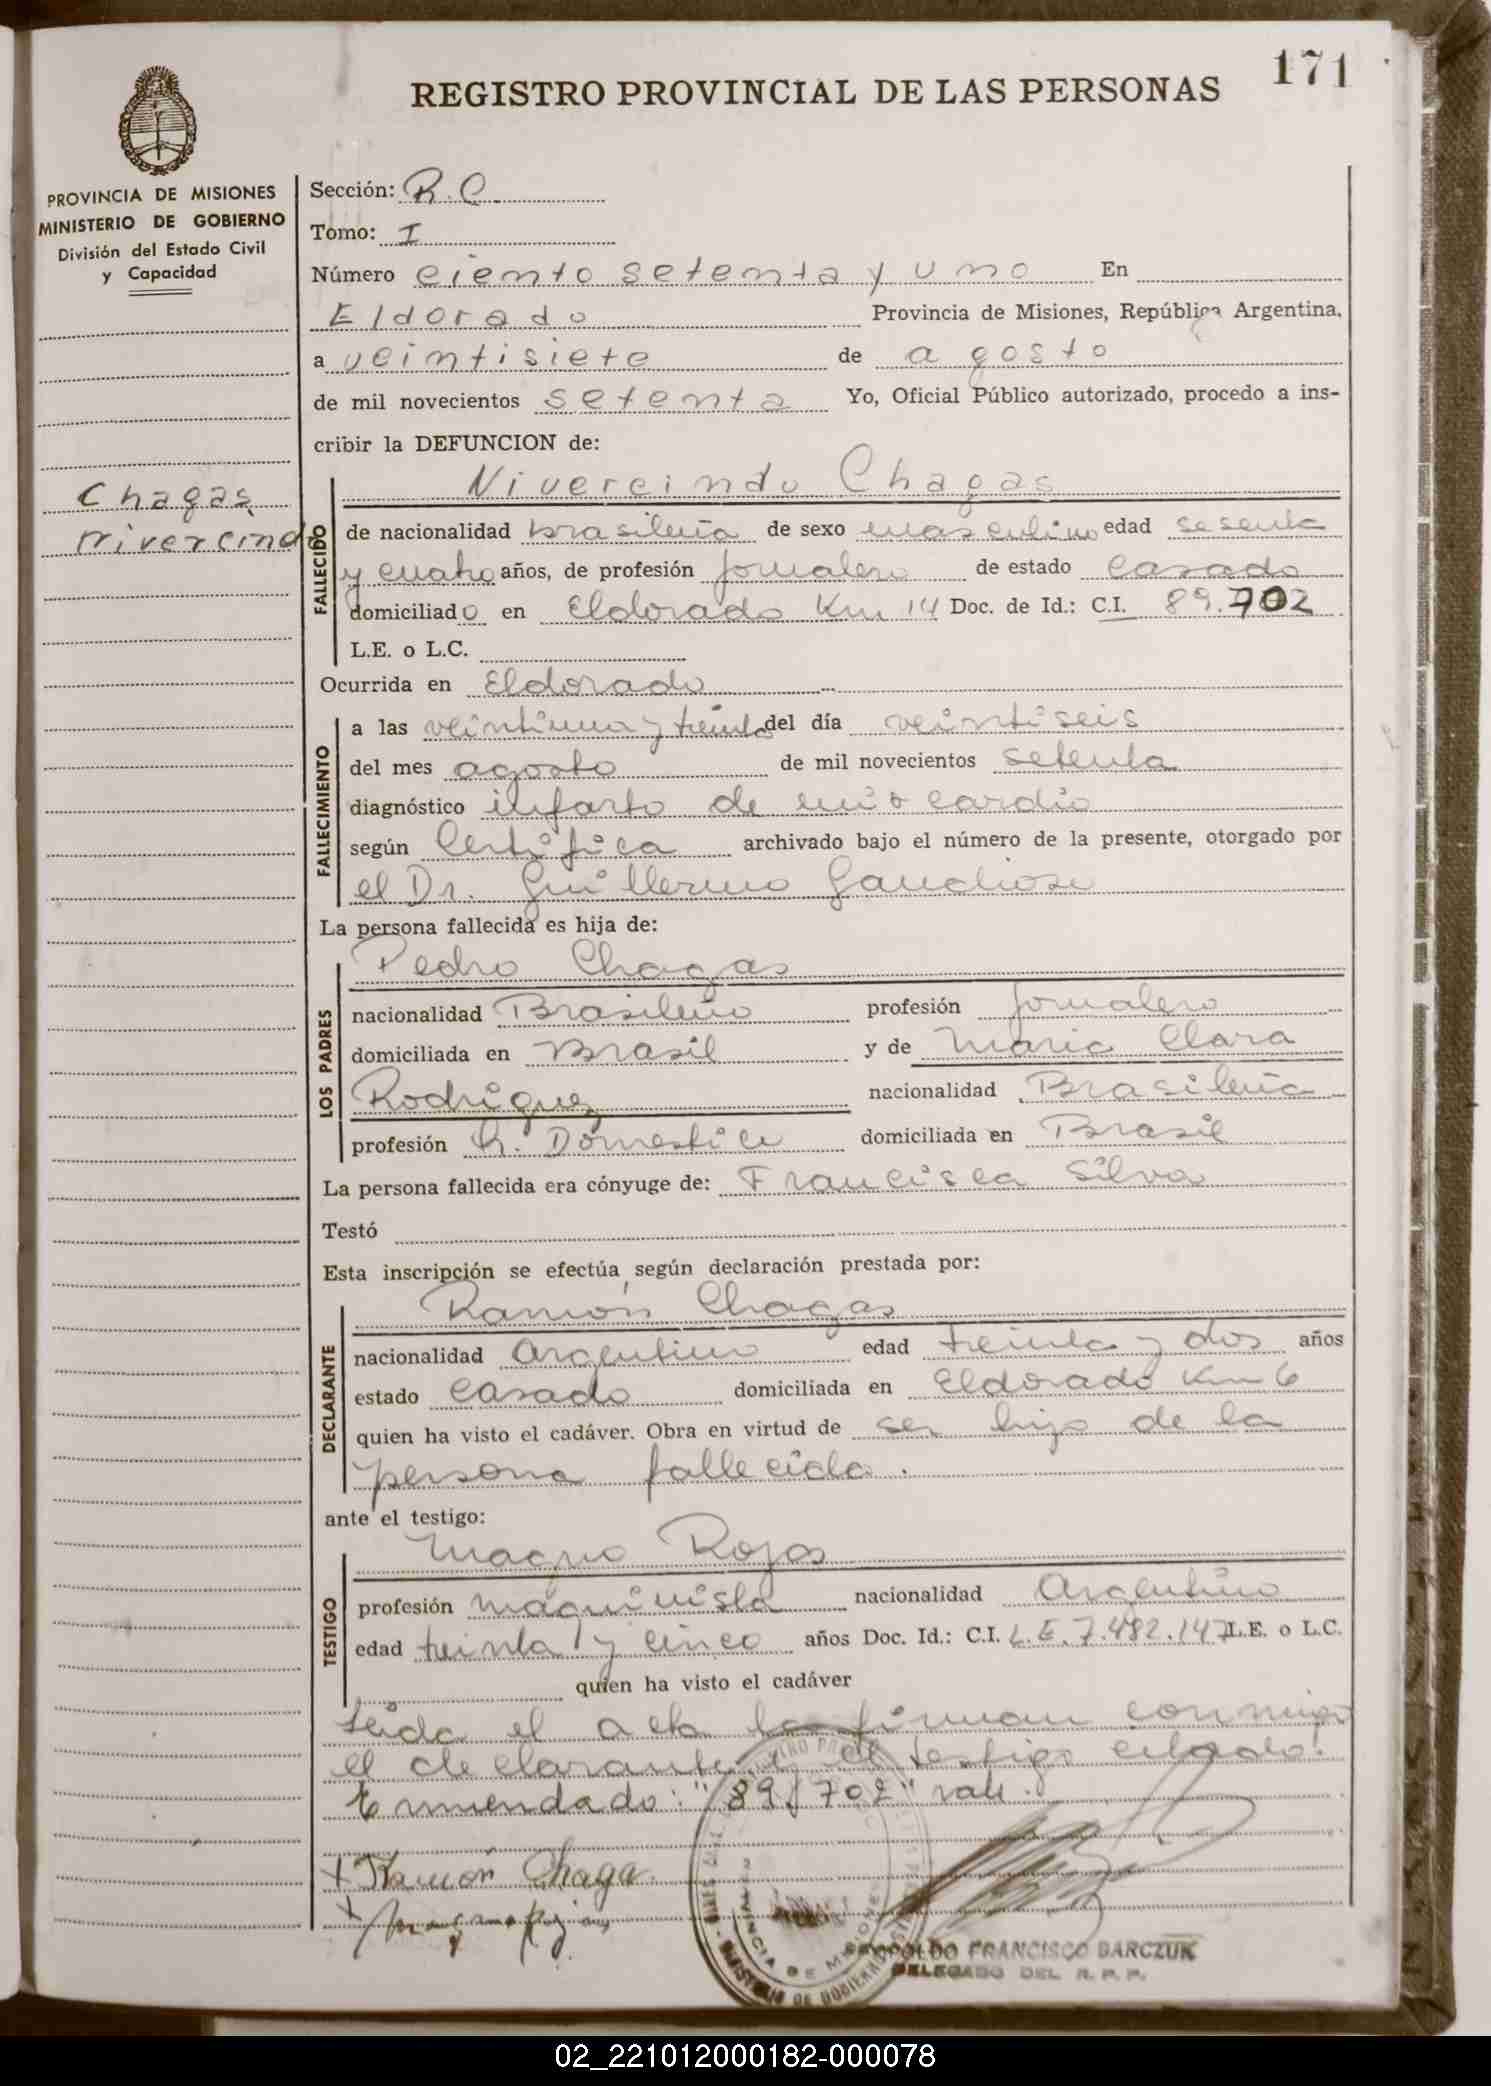 171
REGISTRO PROVINCIAL DE LAS PERSONAS
PROVINCIA DE MISIONES
MINISTERIO DE GOBIERNO
División del Estado Civil
y Capacidad
Chagas,
nivercindo
Sección: R.C.
Tomo: I
Número ciento setenta y uno En
Eldorado Provincia de Misiones, República Argentina,
a veintisiete de agosto
de mil novecientos setenta Yo, Oficial Público autorizado, procedo a ins-
cribir la DEFUNCION de:
Nivercindo Chagas
FALLECIDO
de nacionalidad brasileña de sexo masculino edad sesenta
y cuatro años, de profesión jornalero de estado casado
domiciliado en Eldorado Km 14 Doc. de Id.: C.I. 89.702
L.E. o L.C.
Ocurrida en Eldorado
FALLECIMIENTO
a las veintiuna y treinta del día veintiseis
del mes agosto de mil novecientos setenta
diagnóstico infarto de miocardio
según Certifica archivado bajo el número de la presente, otorgado por
el Dr. Guillermo
La persona fallecida es hija de:
LOS PADRES
Pedro Chagas
nacionalidad Brasileño profesión jornalero
domiciliada en Brasil y de Maria Clara
Rodriguez nacionalidad Brasileña
profesión Domestica domiciliada en Brasil
La persona fallecida era cónyuge de: Francisca Silva
Testó
Esta inscripción se efectúa según declaración prestada por:
DECLARANTE
Ramón Chagas
nacionalidad argentino edad treinta y dos años
estado casado domiciliada en Eldorado Km 6
quien ha visto el cadáver. Obra en virtud de ser hijo de la
persona fallecida.
ante el testigo:
TESTIGO
Magno Rojas
profesión maquinista nacionalidad Argentino
edad treinta y cinco años Doc. Id.: C.I. L.E. 7.482.147 L.E. o L.C.
quien ha visto el cadáver
Leida el acta la firman conmigo
el declarante y el testigo citado.
Enmendado: "89.702" vale.
+ Ramón Chaga
LEOPOLDO FRANCISCO BARCZUK
DELEGADO DEL R. P. P.
02_221012000182-000078